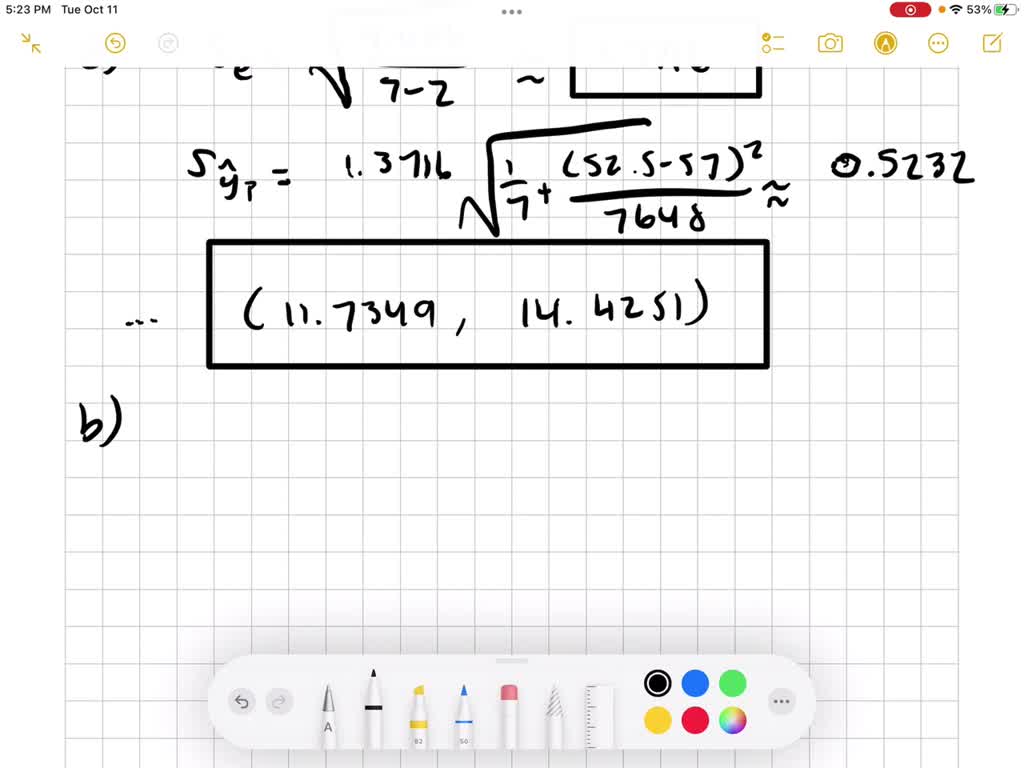 5:23 PM Tue Oct 11 53%
7-2 ~
Sŷp = 1.3716 √(1/7 + (52.5-57)²/7648) ≈ 0.5232
... (11.7349, 14.4251)
b)
A 82 50